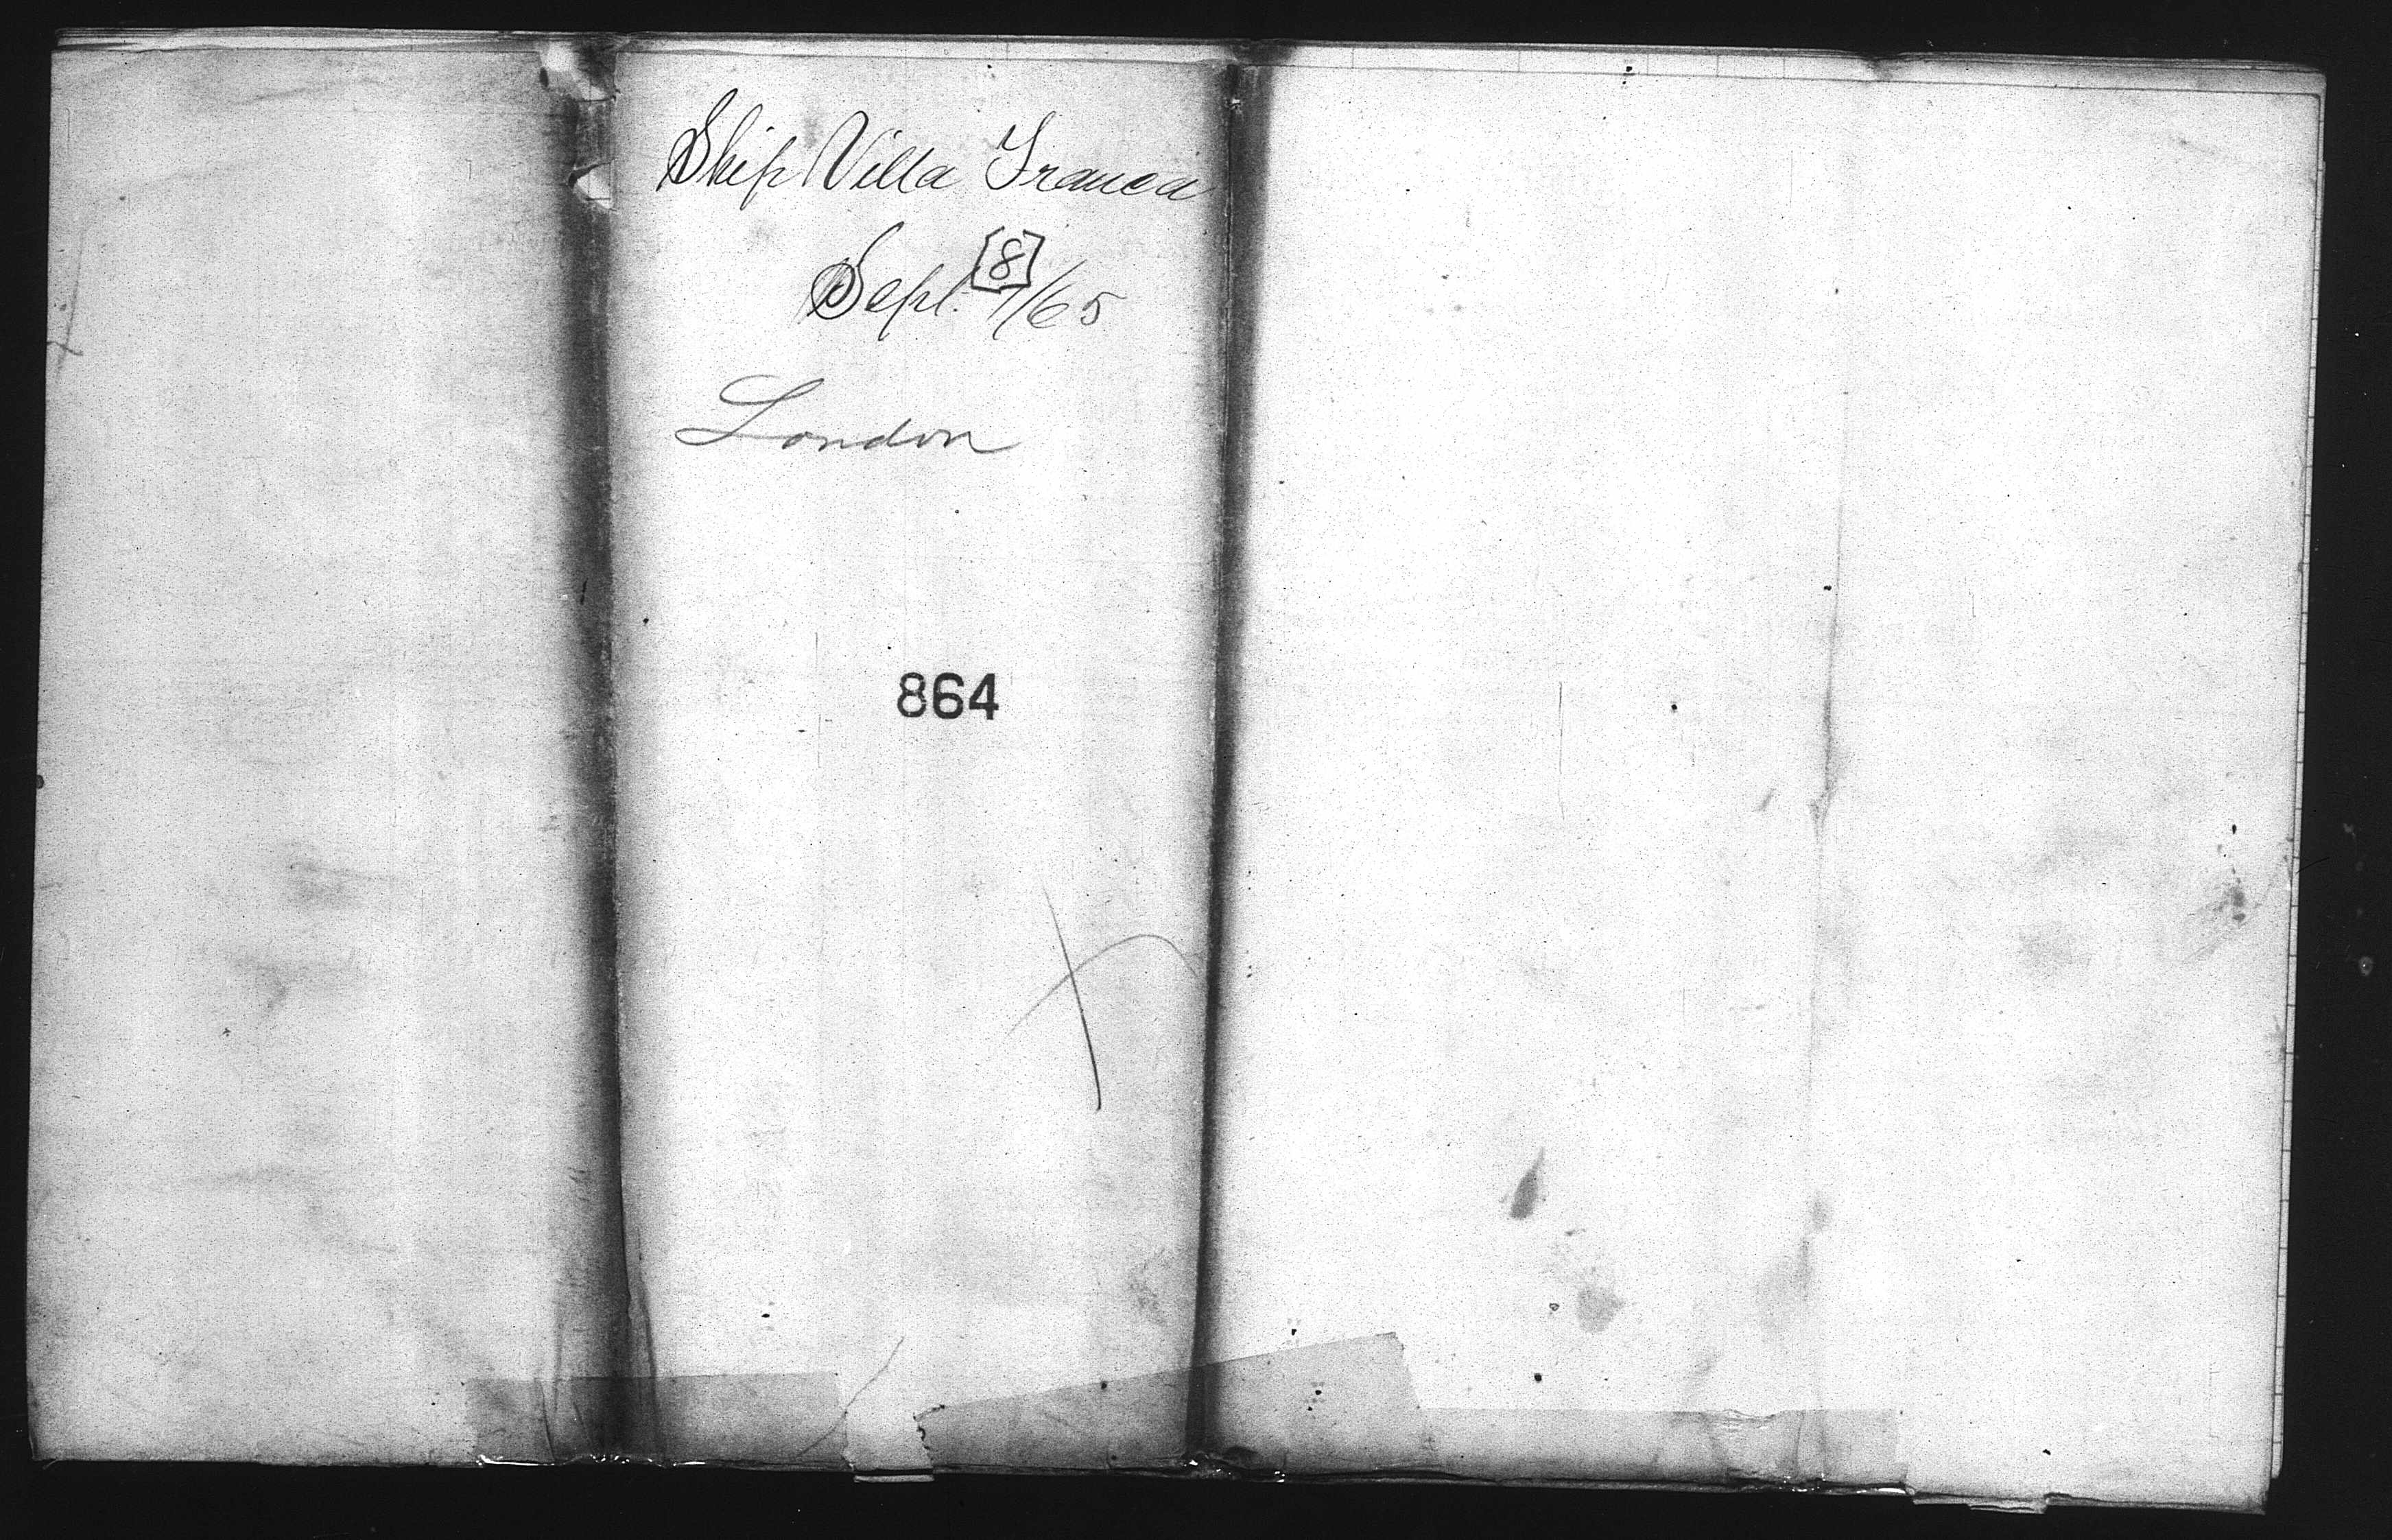 Ship Villa Franca
[8]
Sept. 7/65
London
864